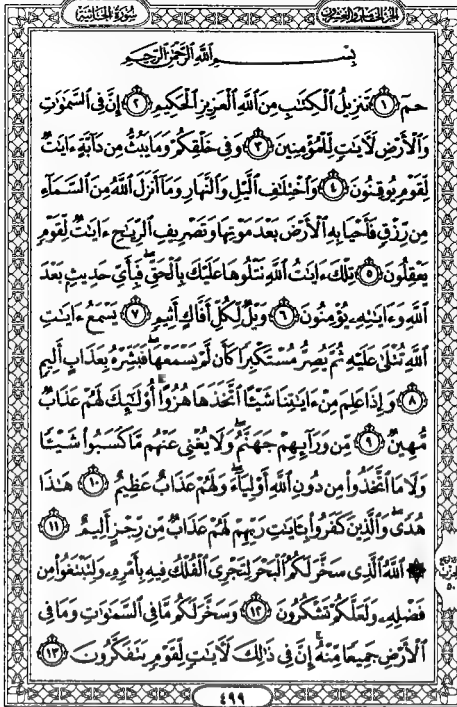 سُورَةُ الجَاثِيَةِ
الجُزْءُ الخَامِسُ وَالعِشْرُونَ
بِسْمِ ٱللَّهِ ٱلرَّحْمَٰنِ ٱلرَّحِيمِ
حمٓ ١ تَنزِيلُ ٱلْكِتَٰبِ مِنَ ٱللَّهِ ٱلْعَزِيزِ ٱلْحَكِيمِ ٢ إِنَّ فِي ٱلسَّمَٰوَٰتِ
وَٱلْأَرْضِ لَءَايَٰتٍ لِّلْمُؤْمِنِينَ ٣ وَفِي خَلْقِكُمْ وَمَا يَبُثُّ مِن دَآبَّةٍ ءَايَٰتٌ
لِّقَوْمٍ يُوقِنُونَ ٤ وَٱخْتِلَٰفِ ٱلَّيْلِ وَٱلنَّهَارِ وَمَآ أَنزَلَ ٱللَّهُ مِنَ ٱلسَّمَآءِ
مِن رِّزْقٍ فَأَحْيَا بِهِ ٱلْأَرْضَ بَعْدَ مَوْتِهَا وَتَصْرِيفِ ٱلرِّيَٰحِ ءَايَٰتٌ لِّقَوْمٍ
يَعْقِلُونَ ٥ تِلْكَ ءَايَٰتُ ٱللَّهِ نَتْلُوهَا عَلَيْكَ بِٱلْحَقِّ ۖ فَبِأَيِّ حَدِيثٍۭ بَعْدَ
ٱللَّهِ وَءَايَٰتِهِۦ يُؤْمِنُونَ ٦ وَيْلٌ لِّكُلِّ أَفَّاكٍ أَثِيمٍ ٧ يَسْمَعُ ءَايَٰتِ
ٱللَّهِ تُتْلَىٰ عَلَيْهِ ثُمَّ يُصِرُّ مُسْتَكْبِرًا كَأَن لَّمْ يَسْمَعْهَا ۖ فَبَشِّرْهُ بِعَذَابٍ أَلِيمٍ
٨ وَإِذَا عَلِمَ مِنْ ءَايَٰتِنَا شَيْـًٔا ٱتَّخَذَهَا هُزُوًا ۚ أُو۟لَٰٓئِكَ لَهُمْ عَذَابٌ
مُّهِينٌ ٩ مِّن وَرَآئِهِمْ جَهَنَّمُ ۖ وَلَا يُغْنِي عَنْهُم مَّا كَسَبُوا۟ شَيْـًٔا
وَلَا مَا ٱتَّخَذُوا۟ مِن دُونِ ٱللَّهِ أَوْلِيَآءَ ۖ وَلَهُمْ عَذَابٌ عَظِيمٌ ١٠ هَٰذَا
هُدًى ۖ وَٱلَّذِينَ كَفَرُوا۟ بِـَٔايَٰتِ رَبِّهِمْ لَهُمْ عَذَابٌ مِّن رِّجْزٍ أَلِيمٌ ١١
۞ ٱللَّهُ ٱلَّذِي سَخَّرَ لَكُمُ ٱلْبَحْرَ لِتَجْرِيَ ٱلْفُلْكُ فِيهِ بِأَمْرِهِۦ وَلِتَبْتَغُوا۟ مِن
فَضْلِهِۦ وَلَعَلَّكُمْ تَشْكُرُونَ ١٢ وَسَخَّرَ لَكُم مَّا فِي ٱلسَّمَٰوَٰتِ وَمَا فِي
ٱلْأَرْضِ جَمِيعًا مِّنْهُ ۚ إِنَّ فِي ذَٰلِكَ لَءَايَٰتٍ لِّقَوْمٍ يَتَفَكَّرُونَ ١٣
٥٠
٤٩٩